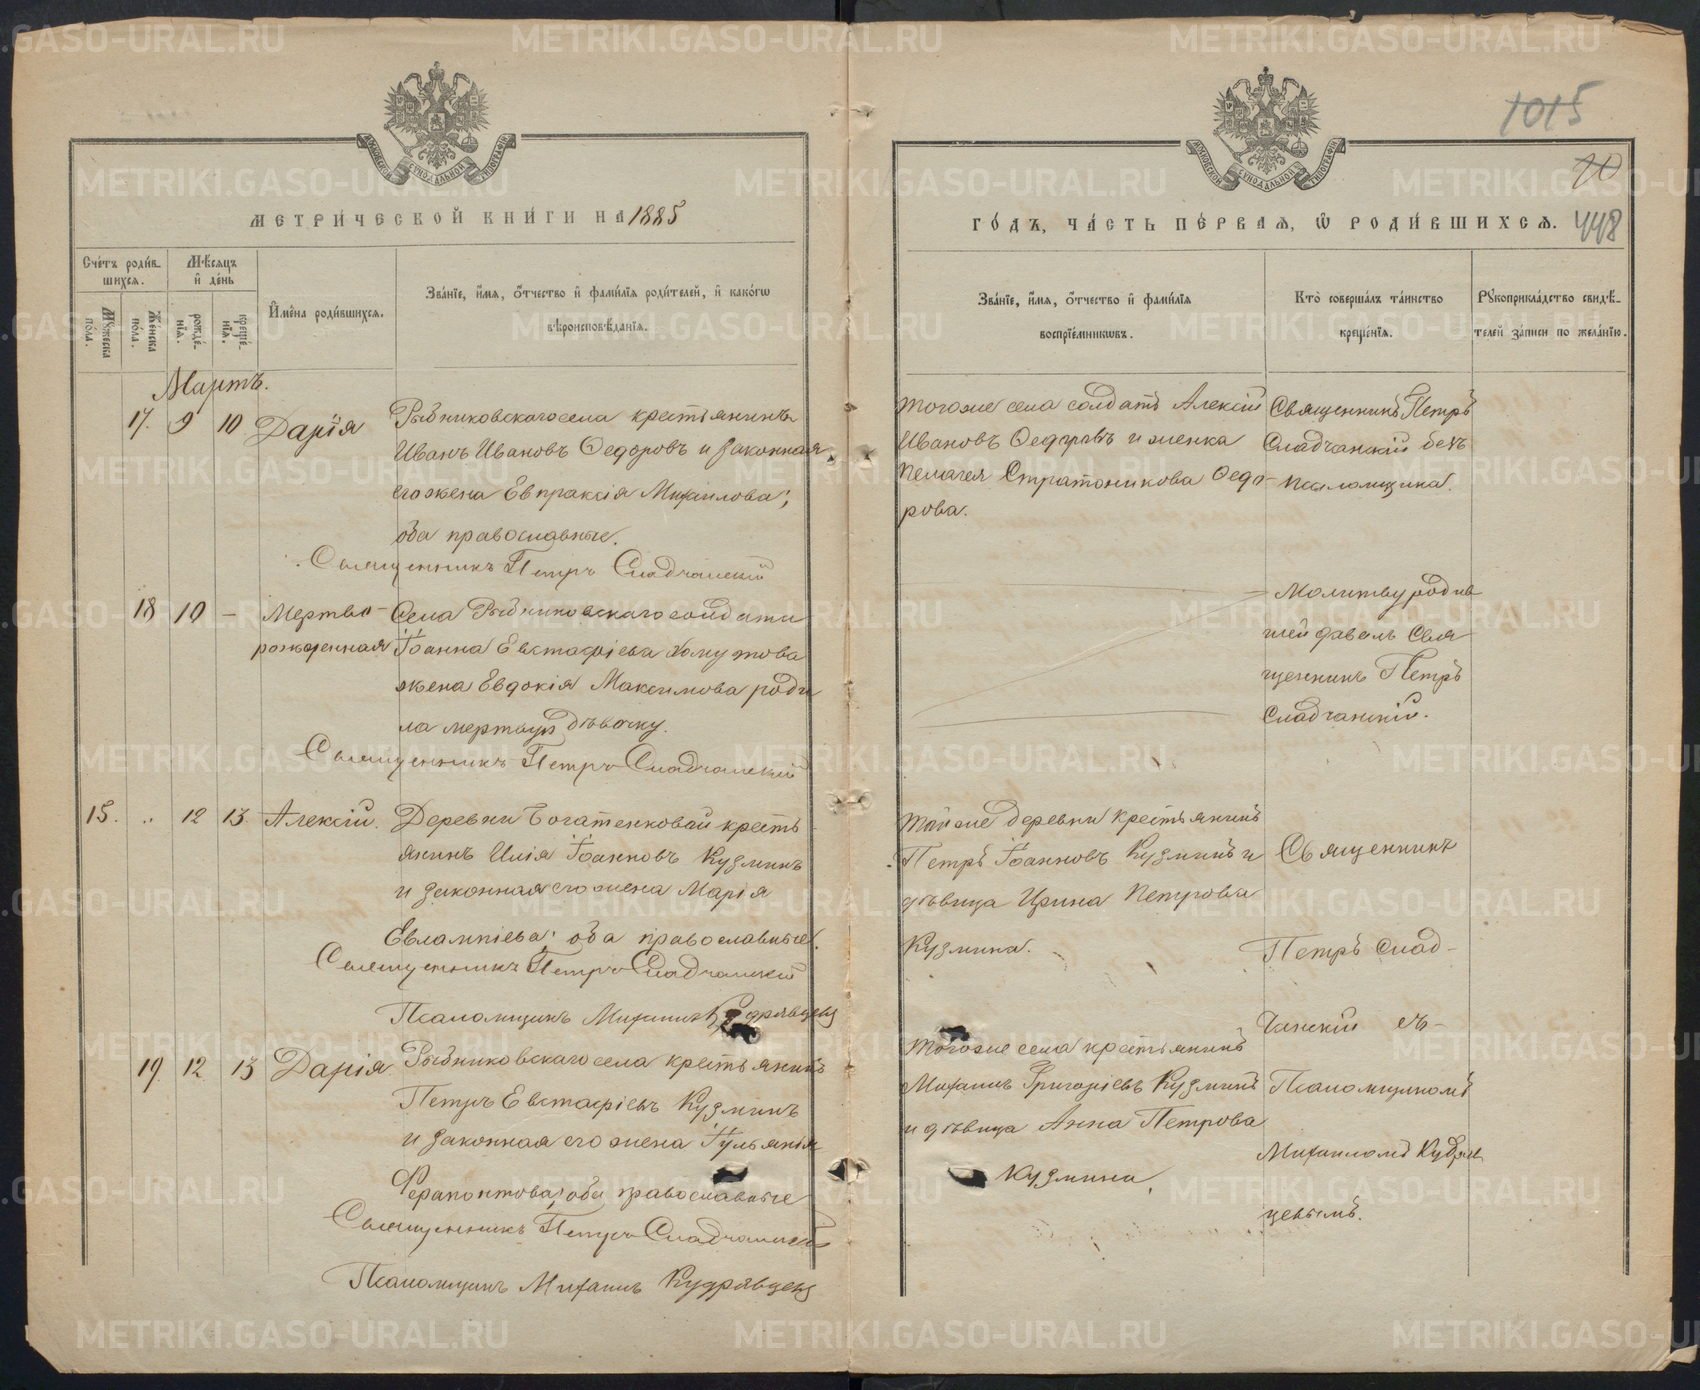 1015
10
448
МЕТРИ́ЧЕСКОЙ КНИ́ГИ НА 1885
ГО́ДЪ, ЧА́СТЬ ПЕ́РВАѦ, Ѡ҆ РОДИ́ВШИХСѦ.
Сче́тъ роди́в-
шихсѧ.
Мѣ́сѧцъ
и҆ де́нь
И҆мена̀ роди́вшихсѧ.
Зва́нїе, и҆́мѧ, ѻ҆́тчество и҆ фами́лїѧ роди́телей, и҆ како́гѡ
вѣроисповѣ́данїѧ.
Мꙋ́жеска
по́ла.
Же́нска
по́ла.
рожде́-
нїѧ.
креще́-
нїѧ.
Зва́нїе, и҆́мѧ, ѻ҆́тчество и҆ фами́лїѧ
воспрїе́мникѡвъ.
Кто̀ соверша́лъ та́инство
креще́нїѧ.
Рꙋкоприкла́дство свидѣ́-
телей за́писи по жела́нїю.
Мартъ.
17. 9 10 Дарія
Рыбниковскаго села крестьянинъ
Иванъ Ивановъ Ѳедоровъ и законная
его жена Евпраксія Михаилова;
оба православные.
Священникъ Петръ Сладчанскій
Тогоже села солдатъ Алексій
Ивановъ Ѳедоровъ и женка
Пелагея Стратоникова Ѳедо-
рова.
Священникъ Петръ
Сладчанскій безъ
псаломщика.
18 10 – Мертво-
рожденная
Села Рыбниковскаго солдата
Іоанна Евстафіева Хомутова
жена Евдокія Максимова роди
ла мертвую дѣвочку.
Священникъ Петръ Сладчанскій
Молитву родив
шей давалъ Свя
щенникъ Петръ
Сладчанскій.
15. „ 12 13. Алексій.
Деревни Богатенковой кресть
янинъ Илія Іоанновъ Кузминъ
и законная его жена Марія
Евлампіева; оба православные.
Священникъ Петръ Сладчанскій
Псаломщикъ Михаилъ Кудрявцевъ
Тойже деревни крестьянинъ
Петръ Іоанновъ Кузминъ и
дѣвица Ирина Петрова
Кузмина.
Священникъ
Петръ Слад-
чанскій съ
19. 12 13 Дарія
Рыбниковскаго села крестьянинъ
Петръ Евстафіевъ Кузминъ
и законная его жена Іульянія
Ферапонтова; оба православные
Священникъ Петръ Сладчанскій
Псаломщикъ Михаилъ Кудрявцевъ
Тогоже села крестьянинъ
Михаилъ Григоріевъ Кузминъ
и дѣвица Анна Петрова
Кузмина.
Псаломщикомъ
Михаиломъ Кудряв
цевымъ.
METRIKI.GASO-URAL.RU